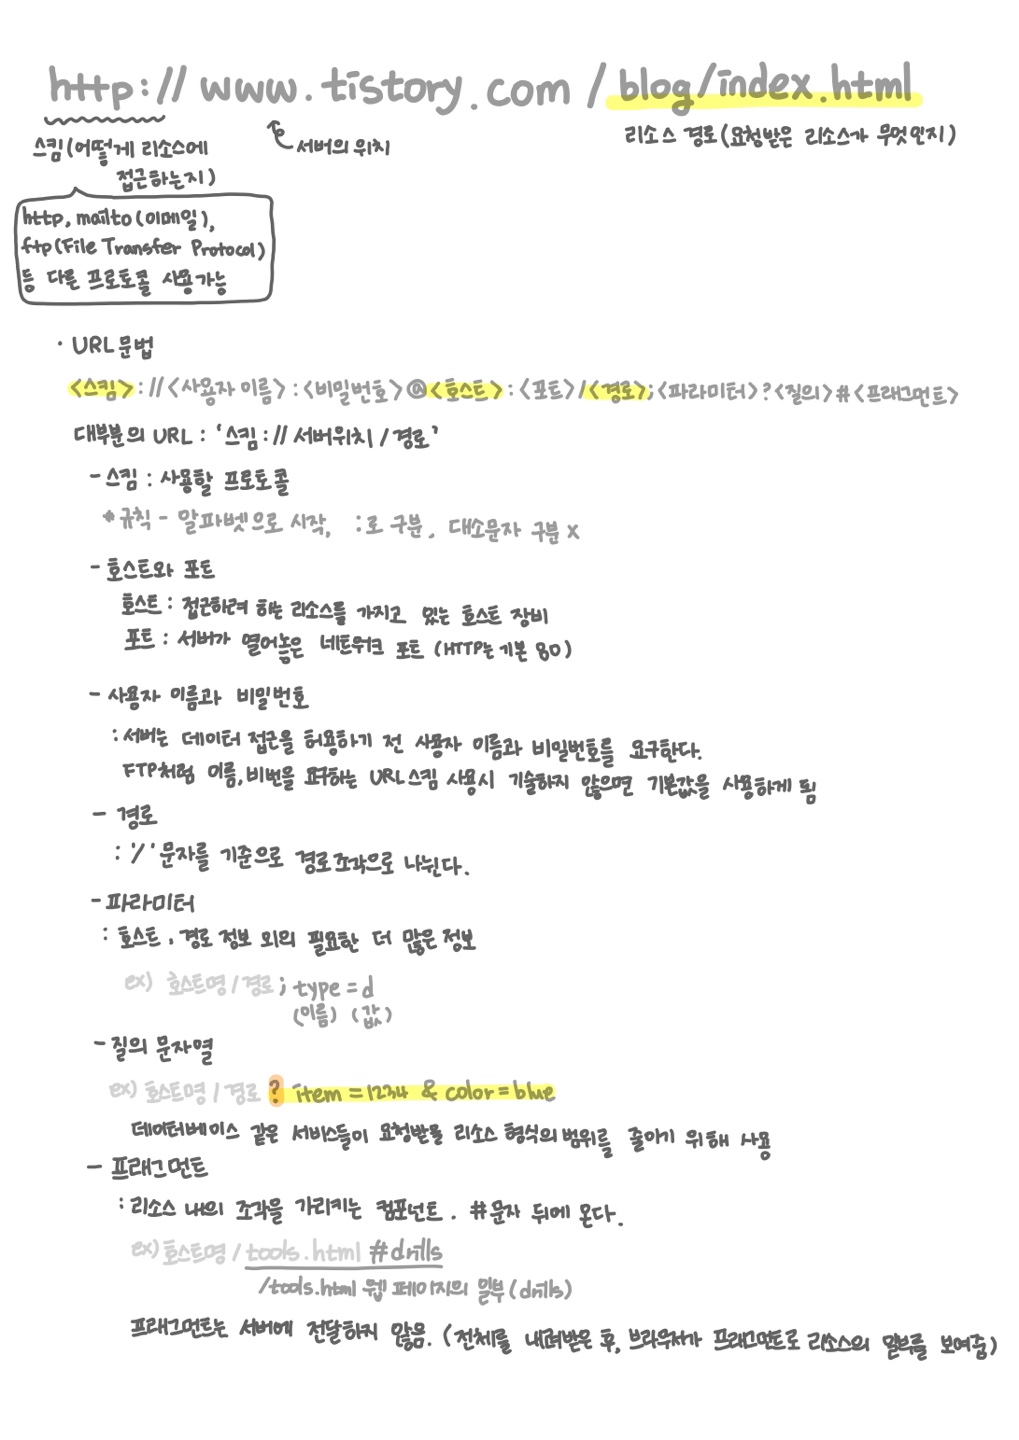 http://www.tistory.com/blog/index.html
스킴(어떻게 리소스에
접근하는지)
서버의 위치
리소스 경로(요청받은 리소스가 무엇인지)
http, mailto(이메일),
ftp(File Transfer Protocol)
등 다른 프로토콜 사용가능
· URL 문법
<스킴>://<사용자 이름>:<비밀번호>@<호스트>:<포트>/<경로>;<파라미터>?<질의>#<프래그먼트>
대부분의 URL : '스킴://서버위치/경로'
- 스킴 : 사용할 프로토콜
* 규칙 - 알파벳으로 시작, :로 구분, 대소문자 구분 X
- 호스트와 포트
호스트 : 접근하려 하는 리소스를 가지고 있는 호스트 장비
포트 : 서버가 열어놓은 네트워크 포트 (HTTP는 기본 80)
- 사용자 이름과 비밀번호
: 서버는 데이터 접근을 허용하기 전 사용자 이름과 비밀번호를 요구한다.
FTP처럼 이름, 비번을 요구하는 URL 스킴 사용시 기술하지 않으면 기본값을 사용하게 됨
- 경로
: '/' 문자를 기준으로 경로조각으로 나뉜다.
- 파라미터
: 호스트, 경로 정보 외의 필요한 더 많은 정보
ex) 호스트명/경로;type=d
(이름) (값)
- 질의 문자열
ex) 호스트명/경로? item=1234 & color=blue
데이터베이스 같은 서비스들이 요청받을 리소스 형식의 범위를 줄이기 위해 사용
- 프래그먼트
: 리소스 내의 조각을 가리키는 컴포넌트. #문자 뒤에 온다.
ex) 호스트명/tools.html #drills
/tools.html 웹 페이지의 일부(drills)
프래그먼트는 서버에 전달하지 않음. (전체를 내려받은 후, 브라우저가 프래그먼트로 리소스의 일부를 보여줌)